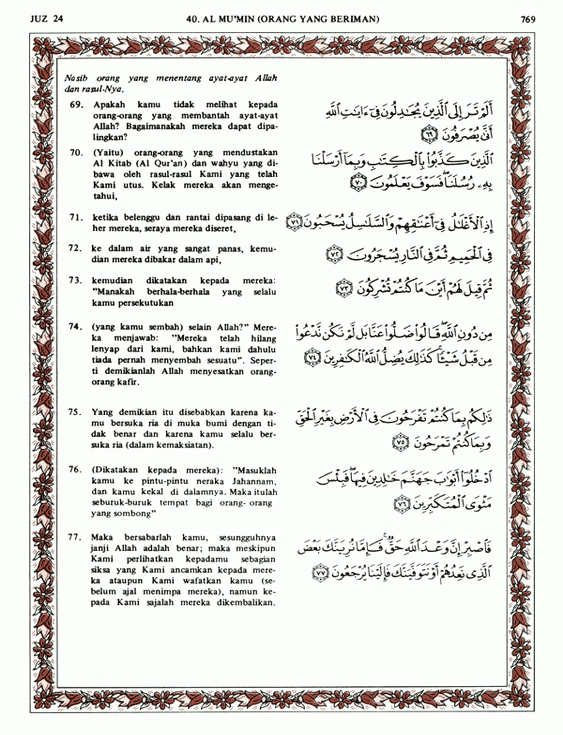 JUZ 24
40. AL MU'MIN (ORANG YANG BERIMAN)
769
Nasib orang yang menentang ayat-ayat Allah
dan rasul-Nya.
69. Apakah kamu tidak melihat kepada
orang-orang yang membantah ayat-ayat
Allah? Bagaimanakah mereka dapat dipa-
lingkan?
أَلَمْ تَرَ إِلَى ٱلَّذِينَ يُجَٰدِلُونَ فِىٓ ءَايَٰتِ ٱللَّهِ
أَنَّىٰ يُصْرَفُونَ ٦٩
70. (Yaitu) orang-orang yang mendustakan
Al Kitab (Al Qur'an) dan wahyu yang di-
bawa oleh rasul-rasul Kami yang telah
Kami utus. Kelak mereka akan menge-
tahui,
ٱلَّذِينَ كَذَّبُوا۟ بِٱلْكِتَٰبِ وَبِمَآ أَرْسَلْنَا
بِهِۦ رُسُلَنَا فَسَوْفَ يَعْلَمُونَ ٧٠
71. ketika belenggu dan rantai dipasang di le-
her mereka, seraya mereka diseret,
إِذِ ٱلْأَغْلَٰلُ فِىٓ أَعْنَٰقِهِمْ وَٱلسَّلَٰسِلُ يُسْحَبُونَ ٧١
72. ke dalam air yang sangat panas, kemu-
dian mereka dibakar dalam api,
فِى ٱلْحَمِيمِ ثُمَّ فِى ٱلنَّارِ يُسْجَرُونَ ٧٢
73. kemudian dikatakan kepada mereka:
"Manakah berhala-berhala yang selalu
kamu persekutukan
ثُمَّ قِيلَ لَهُمْ أَيْنَ مَا كُنتُمْ تُشْرِكُونَ ٧٣
74. (yang kamu sembah) selain Allah?" Mere-
ka menjawab: "Mereka telah hilang
lenyap dari kami, bahkan kami dahulu
tiada pernah menyembah sesuatu". Seper-
ti demikianlah Allah menyesatkan orang-
orang kafir.
مِن دُونِ ٱللَّهِ قَالُوا۟ ضَلُّوا۟ عَنَّا بَل لَّمْ نَكُن نَّدْعُوا۟
مِن قَبْلُ شَيْـًٔا كَذَٰلِكَ يُضِلُّ ٱللَّهُ ٱلْكَٰفِرِينَ ٧٤
75. Yang demikian itu disebabkan karena ka-
mu bersuka ria di muka bumi dengan ti-
dak benar dan karena kamu selalu ber-
suka ria (dalam kemaksiatan).
ذَٰلِكُم بِمَا كُنتُمْ تَفْرَحُونَ فِى ٱلْأَرْضِ بِغَيْرِ ٱلْحَقِّ
وَبِمَا كُنتُمْ تَمْرَحُونَ ٧٥
76. (Dikatakan kepada mereka): "Masuklah
kamu ke pintu-pintu neraka Jahannam,
dan kamu kekal di dalamnya. Maka itulah
seburuk-buruk tempat bagi orang-orang
yang sombong"
ٱدْخُلُوٓا۟ أَبْوَٰبَ جَهَنَّمَ خَٰلِدِينَ فِيهَا فَبِئْسَ
مَثْوَى ٱلْمُتَكَبِّرِينَ ٧٦
77. Maka bersabarlah kamu, sesungguhnya
janji Allah adalah benar; maka meskipun
Kami perlihatkan kepadamu sebagian
siksa yang Kami ancamkan kepada mere-
ka ataupun Kami wafatkan kamu (se-
belum ajal menimpa mereka), namun ke-
pada Kami sajalah mereka dikembalikan.
فَٱصْبِرْ إِنَّ وَعْدَ ٱللَّهِ حَقٌّ فَإِمَّا نُرِيَنَّكَ بَعْضَ
ٱلَّذِى نَعِدُهُمْ أَوْ نَتَوَفَّيَنَّكَ فَإِلَيْنَا يُرْجَعُونَ ٧٧